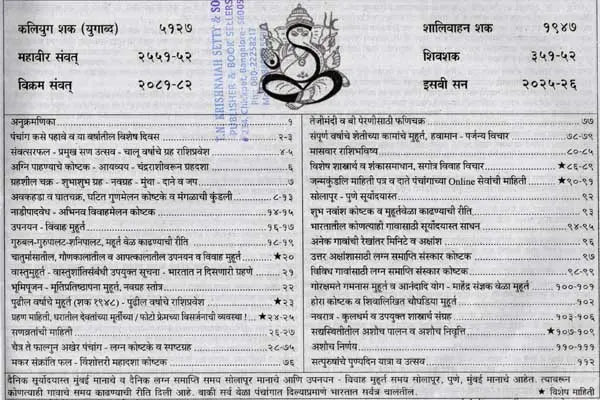 कलियुग शक (युगाब्द) ५१२७
महावीर संवत् २५५१-५२
विक्रम संवत् २०८१-८२
शालिवाहन शक १९४७
शिवशक ३५१-५२
इसवी सन २०२५-२६
T.N. KRISHNAIAH SETTY & SO
PUBLISHER & BOOK SELLERS
Chickpet, Bangalore-
अनुक्रमणिका १
पंचांग कसे पहावे व या वर्षातील विशेष दिवस २-३
संवत्सरफल - प्रमुख सण उत्सव - चालू वर्षाचे ग्रह राशिप्रवेश ४-५
अग्नि पाहण्याचे कोष्टक - आयव्यय - चंद्रराशीवरून ग्रहदशा ६
ग्रहशील चक्र - शुभाशुभ ग्रह - नवग्रह - मुंथा - दाने व जप ७
अवकहडा व घातचक्र, घटित गुणमेलन कोष्टके व मंगळाची कुंडली ८-१३
नाडीपादवेध - अभिनव विवाहमेलन कोष्टक १४-१५
उपनयन - विवाह मुहूर्त १६-१७
गुरुबल-गुरुपालट-शनिपालट, मुहूर्त वेळ काढण्याची रीति १८-१९
चातुर्मासातील, गौणकालातील व आपत्कालातील उपनयन व विवाह मुहूर्त ★२०
वास्तुमुहूर्त - वास्तुशांतिसंबंधी उपयुक्त सूचना - भारतात न दिसणारी ग्रहणे २१
भूमिपूजन - मूर्तिप्रतिष्ठापना मुहूर्त, नवग्रह स्तोत्र २२
पुढील वर्षाचे मुहूर्त (शक १९४८) - पुढील वर्षाचे राशिप्रवेश ★२३
ग्रहण माहिती, घरातील देवतांच्या मूर्तींच्या / फोटो फ्रेमच्या विसर्जनाची व्यवस्था ! ★२४-२५
सणव्रतांची माहिती २६-२७
चैत्र ते फाल्गुन अखेर पंचांग - लग्न कोष्टके व स्पष्टग्रह २८-७५
मकर संक्रांति फल - विंशोत्तरी महादशा कोष्टक ७६
तेजीमंदी व बी पेरणीसाठी फणिचक्र ७७
संपूर्ण वर्षाचे शेतीच्या कामांचे मुहूर्त, हवामान - पर्जन्य विचार ७८-७९
मासवार राशिभविष्य ८०-८५
विशेष शास्त्रार्थ व शंकासमाधान, सगोत्र विवाह विचार ★८६-८९
जन्मकुंडलि माहिती पत्र व दाते पंचांगाच्या Online सेवांची माहिती ★९०-९१
सोलापूर - पुणे सूर्योदयास्त ९२
शुभ नवांश कोष्टक व मुहूर्तवेळा काढण्याची रीती ९३
भारतातील कोणत्याही गावासाठी सूर्योदयास्त साधन ९४-९५
अनेक गावांची रेखांतर मिनिटे व अक्षांश ९६
उत्तर अक्षांशासाठी लग्न समाप्ति संस्कार कोष्टक ९७
विविध गावांसाठी लग्न समाप्ति संस्कार कोष्टक ९८-९९
गोरक्षमते गमनास मुहूर्त व आनंदादि योग - माहेंद्र संज्ञक वेळा मुहूर्त १००-१०१
होरा कोष्टक व शिवालिखित चौघडिया मुहूर्त १०२
नवरात्र - कुलधर्म व उपयुक्त शास्त्रार्थ संग्रह १०३-१०६
सद्यस्थितीतील अशौच पालन व अशौच निवृत्ति ★१०७-१०९
अशौच निर्णय ११०-१११
सत्पुरुषांचे पुण्यदिन यात्रा व उत्सव ११२
दैनिक सूर्योदयास्त मुंबई मानाचे व दैनिक लग्न समाप्ति समय सोलापूर मानाचे आणि उपनयन - विवाह मुहूर्त समय सोलापूर, पुणे, मुंबई मानाचे आहेत. त्यावरून
कोणत्याही गावाचे समय काढण्याची रीती दिली आहे. बाकी सर्व वेळा पंचांगात दिल्याप्रमाणे भारतात सर्वत्र चालतील. ★ विशेष माहिती